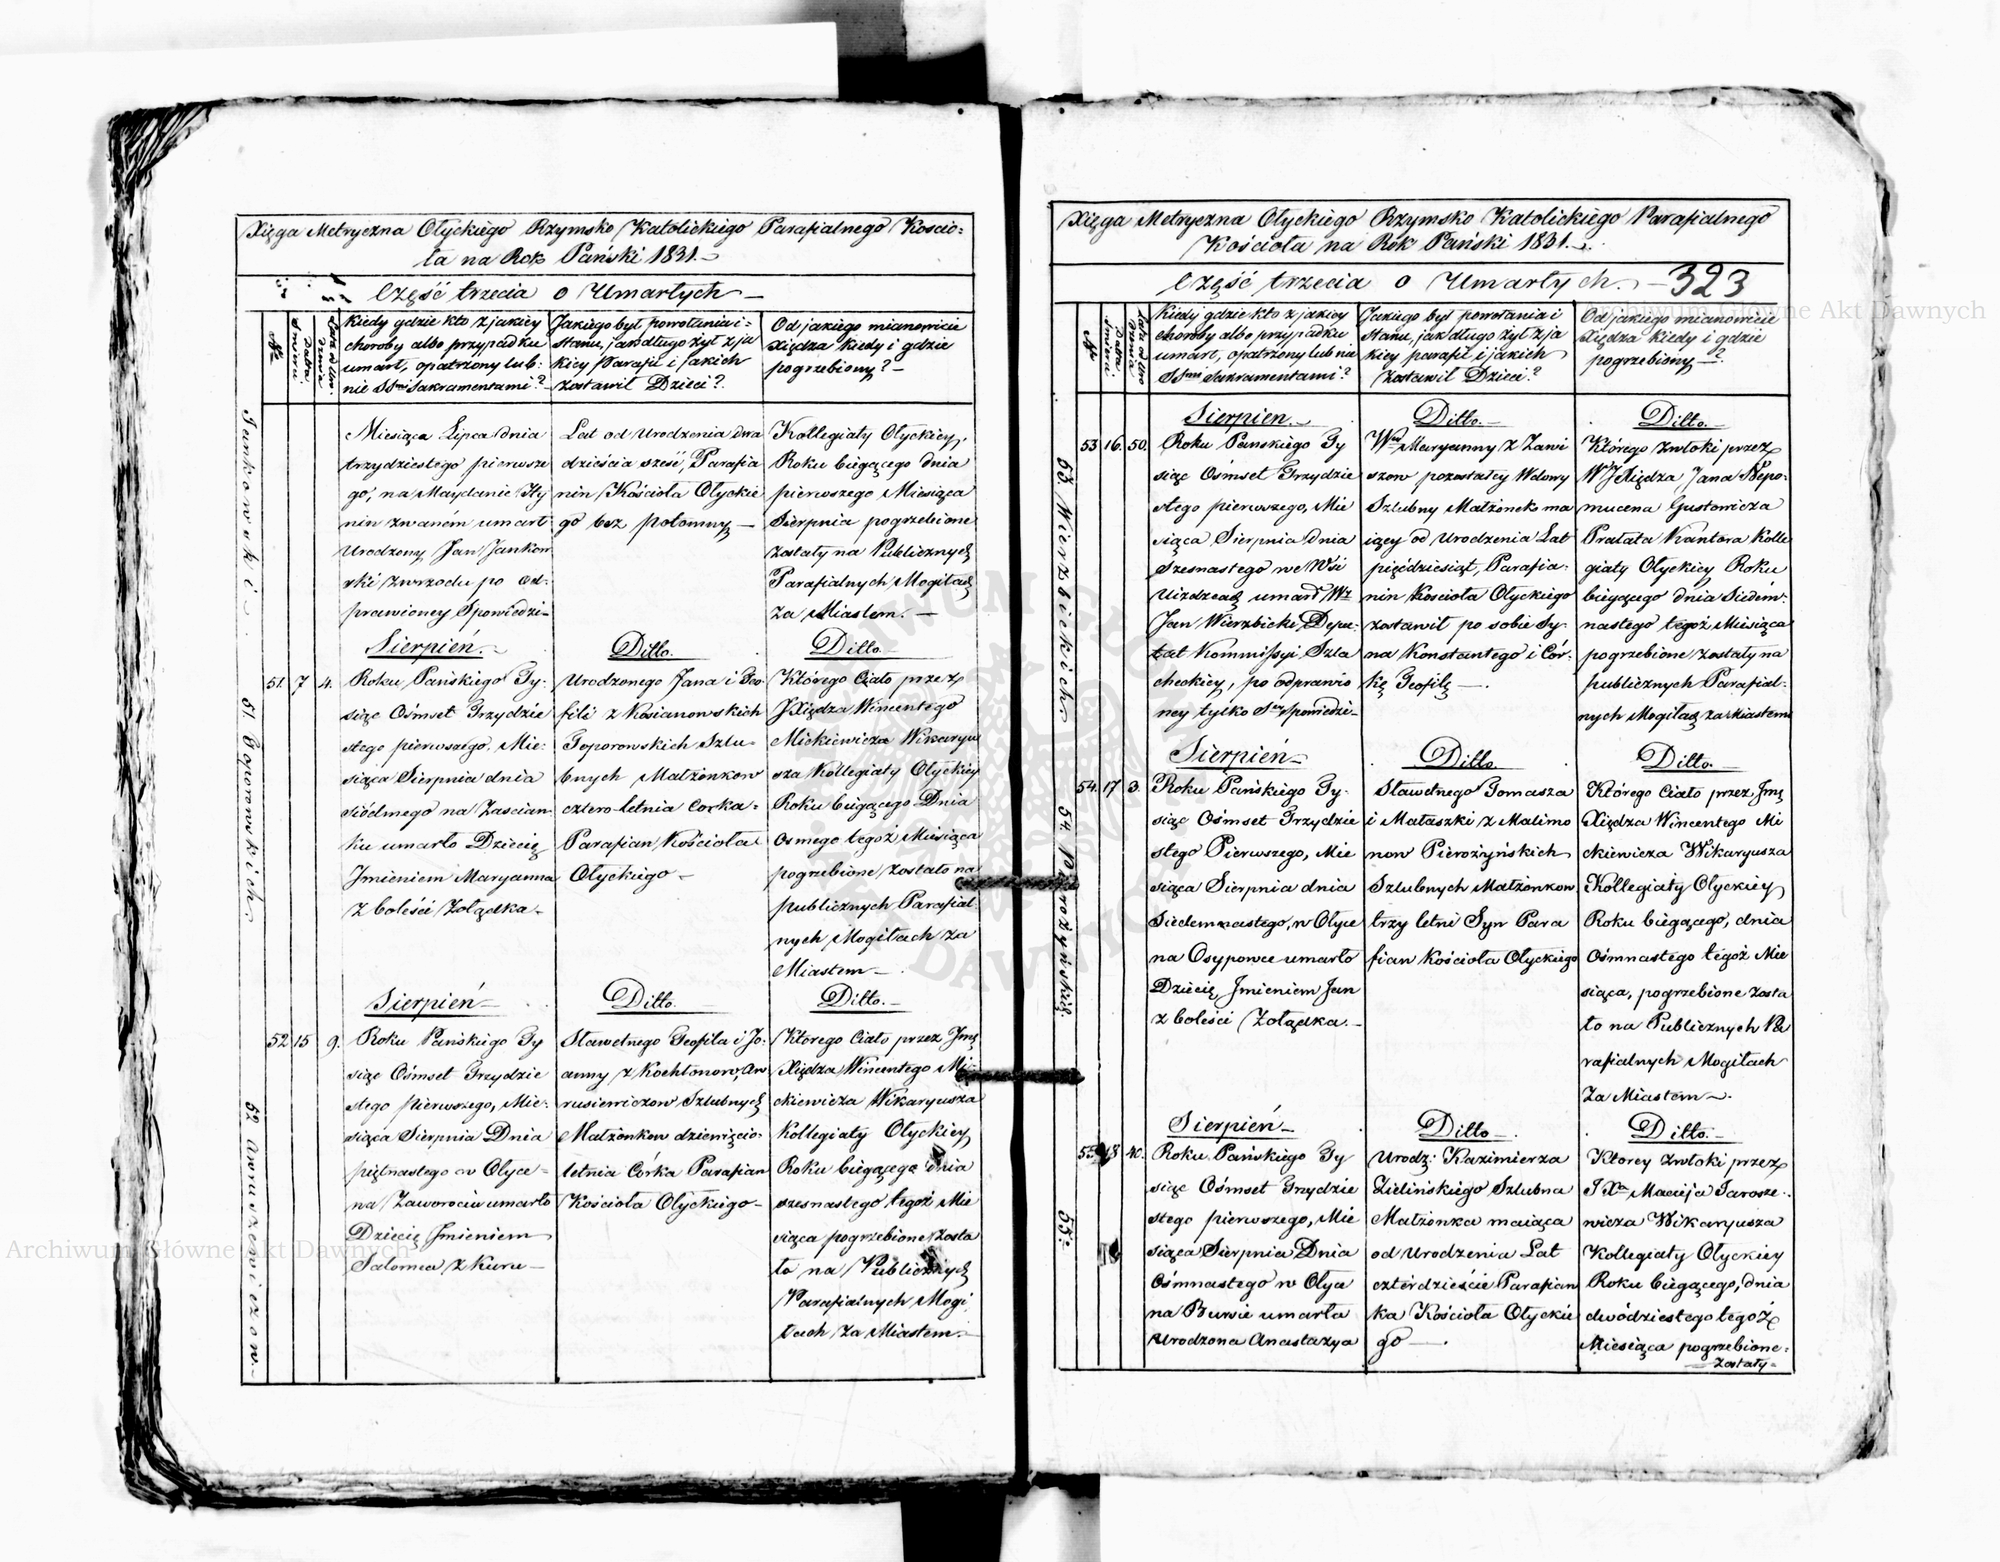 Xięga Metryczna Ołyckiego Rzymsko Katolickiego Parafialnego Kościo=
ła na Rok Pański 1831.
Część trzecia o Umarłych
№
Data Śmierci
Lata od Uro dzenia
Kiedy gdzie kto z jakiey
choroby albo przypadku
umarł, opatrzony lub
nie SSmi Sakramentami?
Jakiego był powołania i
stanu, jak długo żył z ja
kiey Parafii i jakich
zostawił Dzieci?
Od jakiego mianowicie
Xiędza kiedy i gdzie
pogrzebiony?
Jankowski
Miesiąca Lipca dnia
trzydziestego pierwsze
go, na Maydanie Hy
nin zwaném umarł
Urodzony Jan Jankow
ski z wrzodu po od=
prawioney Spowiedzi
Lat od Urodzenia dwa
dzieścia sześć, Parafia
nin Kościoła Ołyckie
go bez potomny
Kollegiaty Ołyckiey,
Roku biegącego dnia
pierwszego Miesiąca
Sierpnia pogrzebione
zostały na Publicznych
Parafialnych Mogiłach
za Miastem.
51. Toporowskich
Sierpień
Ditto.
Ditto.
51. 7 4.
Roku Pańskiego Ty=
siąc Ośmset Trzydzie
stego pierwszego, Mie=
siąca Sierpnia dnia
siódmego na Zaścian
ku umarło Dziecię
Jmieniem Maryanna
z boleści Żołądka
Urodzonego Jana i Teo
fili z Kosianowskich
Toporowskich Szlu=
bnych Małżonkow
cztero-letnia corka
Parafian Kościoła
Ołyckiego
Którego Ciało przez
JXiędza Wincentego
Mickiewicza Wikaryu
sza Kollegiaty Ołyckiey
Roku biegącego Dnia
Osmego tegoż Miesiąca
pogrzebione zostało na
publicznych Parafial=
nych Mogiłach za
Miastem
52. Awrusiewiczow
Sierpień
Ditto.
Ditto.
52 15 9.
Roku Pańskiego Ty
siąc Ośmset Trzydzie
stego pierwszego, Mie=
siąca Sierpnia Dnia
piętnastego w Ołyce
na Zaworociu umarło
Dziecię Jmieniem
Salomea z Kuru
Sławetnego Teofila i Jo=
anny z Kochłonow, Aw
rusiewiczow Szlubnych
Małżonkow dziewięcio=
letnia Córka Parafian
Kościoła Ołyckiego
Którego Ciało przez Jmę
Xiędza Wincentego Mi=
ckiewicza Wikaryusza
Kollegiaty Ołyckiey
Roku biegącego dnia
szesnastego tegoż Mie
siąca pogrzebione zosta
ło na Publicznych
Parafialnych Mogi
łach za Miastem.
Xięga Metryczna Ołyckiego Rzymsko Katolickiego Parafialnego
Kościoła na Rok Pański 1831.
Część trzecia o Umarłych.
323
№
Data Śmierci
Lata od Uro dzenia
Kiedy gdzie kto z jakiey
choroby albo przypadku
umarł, opatrzony lub nie
SSmi Sakramentami?
Jakiego był powołania i
stanu, jak długo żył z ja
kiey parafii i jakich
zostawił Dzieci?
Od jakiego mianowicie
Xiędza kiedy i gdzie
pogrzebiony?
53. Wierzbickich
Sierpien
Ditto.
Ditto.
53 16. 50.
Roku Pańskiego Ty
siąc Ośmset Trzydzie
stego pierwszego, Mie
siąca Sierpnia dnia
szesnastego we Wsi
Uizdcach umarł Wż
Jan Wierzbicki, Depu=
tat Kommissyi Szla
checkiey, po odprawio
ney tylko Sey Spowiedzi
Wey Maryanny z Zawi
szow pozostałey Wdowy
Szlubny Małżonek ma
iący od Urodzenia Lat
pięćdziesiąt, Parafia=
nin Kościoła Ołyckiego
zostawił po sobie Sy=
na Konstantego i Cór=
kę Teofilę
Którego zwłoki przez
WJXiędza Jana Nepo=
mucena Gustowicza
Prałata Kantora Kolle
giaty Ołyckiey Roku
biegącego dnia Siedem=
nastego tegoż Miesiąca
pogrzebione zostały na
publicznych Parafial=
nych Mogiłach za Miastem
54. Pierożyńskich.
Sierpień
Ditto.
Ditto.
54. 17 3.
Roku Pańskiego Ty=
siąc Ośmset Trzydzie
stego Pierwszego, Mie
siąca Sierpnia dnia
Siedemnastego, w Ołyce
na Osypowce umarło
Dziecię Jmieniem Jan
z boleści Żołądka.
Sławetnego Tomasza
i Małaszki z Malimo
now Pierożyńskich
Szlubnych Małżonkow
trzy letni Syn Para
fian Kościoła Ołyckiego
Którego Ciało przez Jmę
Xiędza Wincentego Mi
ckiewicza Wikaryusza
Kollegiaty Ołyckiey
Roku biegącego, dnia
Ośmnastego tegoż Mie
siąca, pogrzebione zosta
ło na Publicznych Pa
rafialnych Mogiłach
za Miastem.
55.
Sierpień
Ditto.
Ditto.
55 18 40.
Roku Pańskiego Ty
siąc Ośmset Trzydzie
stego pierwszego, Mie
siąca Sierpnia Dnia
Ośmnastego w Ołyce
na Bursie umarła
Urodzona Anastazya
Urodz: Kazimierza
Zielińskiego Szlubna
Małżonka maiąca
od Urodzenia Lat
czterdzieście Parafian
ka Kościoła Ołyckie
go
Ktorey zwłoki przez
JXa Macieja Jarosze=
wicza Wikaryusza
Kollegiaty Ołyckiey
Roku biegącego, dnia
dwódziestego tegoż
Miesiąca pogrzebione
zostały=
Archiwum Główne Akt Dawnych
Archiwum Główne Akt Dawnych